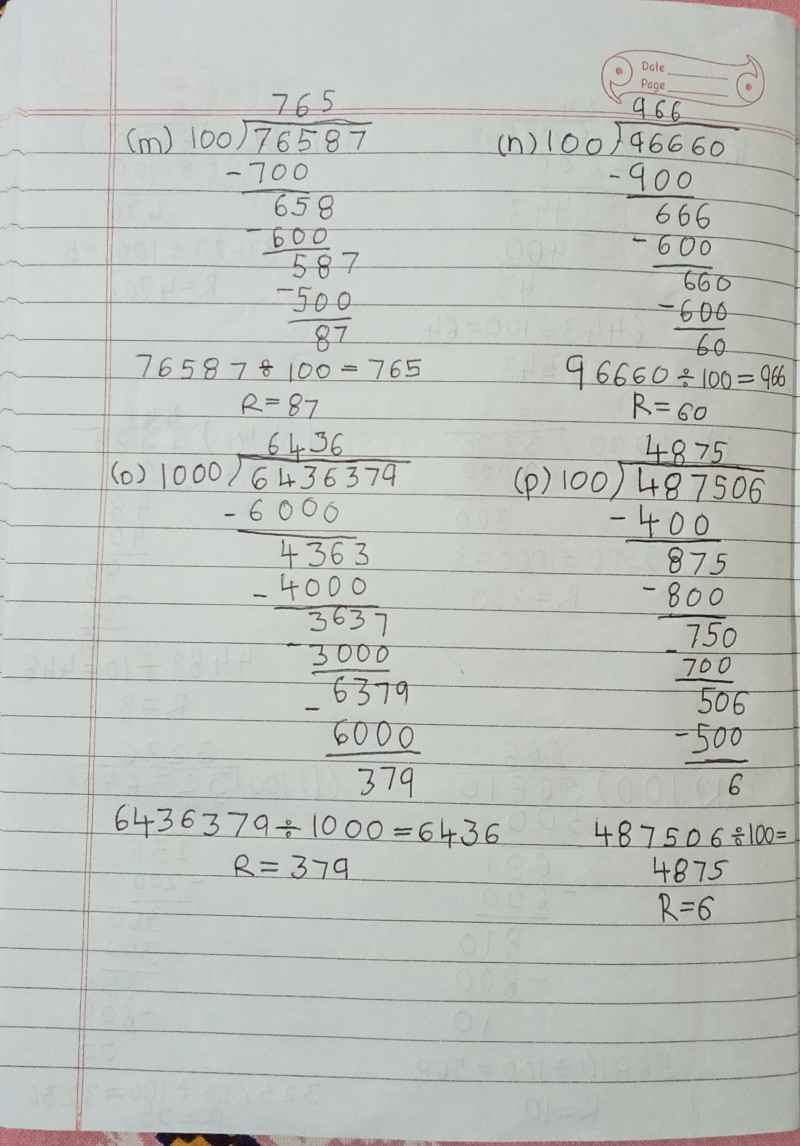 Date
Page
765
(m) 100)76587
-700
658
-600
587
-500
87
76587 ÷ 100 = 765
R=87
966
(n) 100)96660
-900
666
-600
660
-600
60
96660÷100=966
R=60
6436
(o) 1000)6436379
-6000
4363
-4000
3637
-3000
-6379
6000
379
6436379÷1000=6436
R=379
4875
(p) 100)487506
-400
875
-800
-750
700
506
-500
6
487506÷100=
4875
R=6